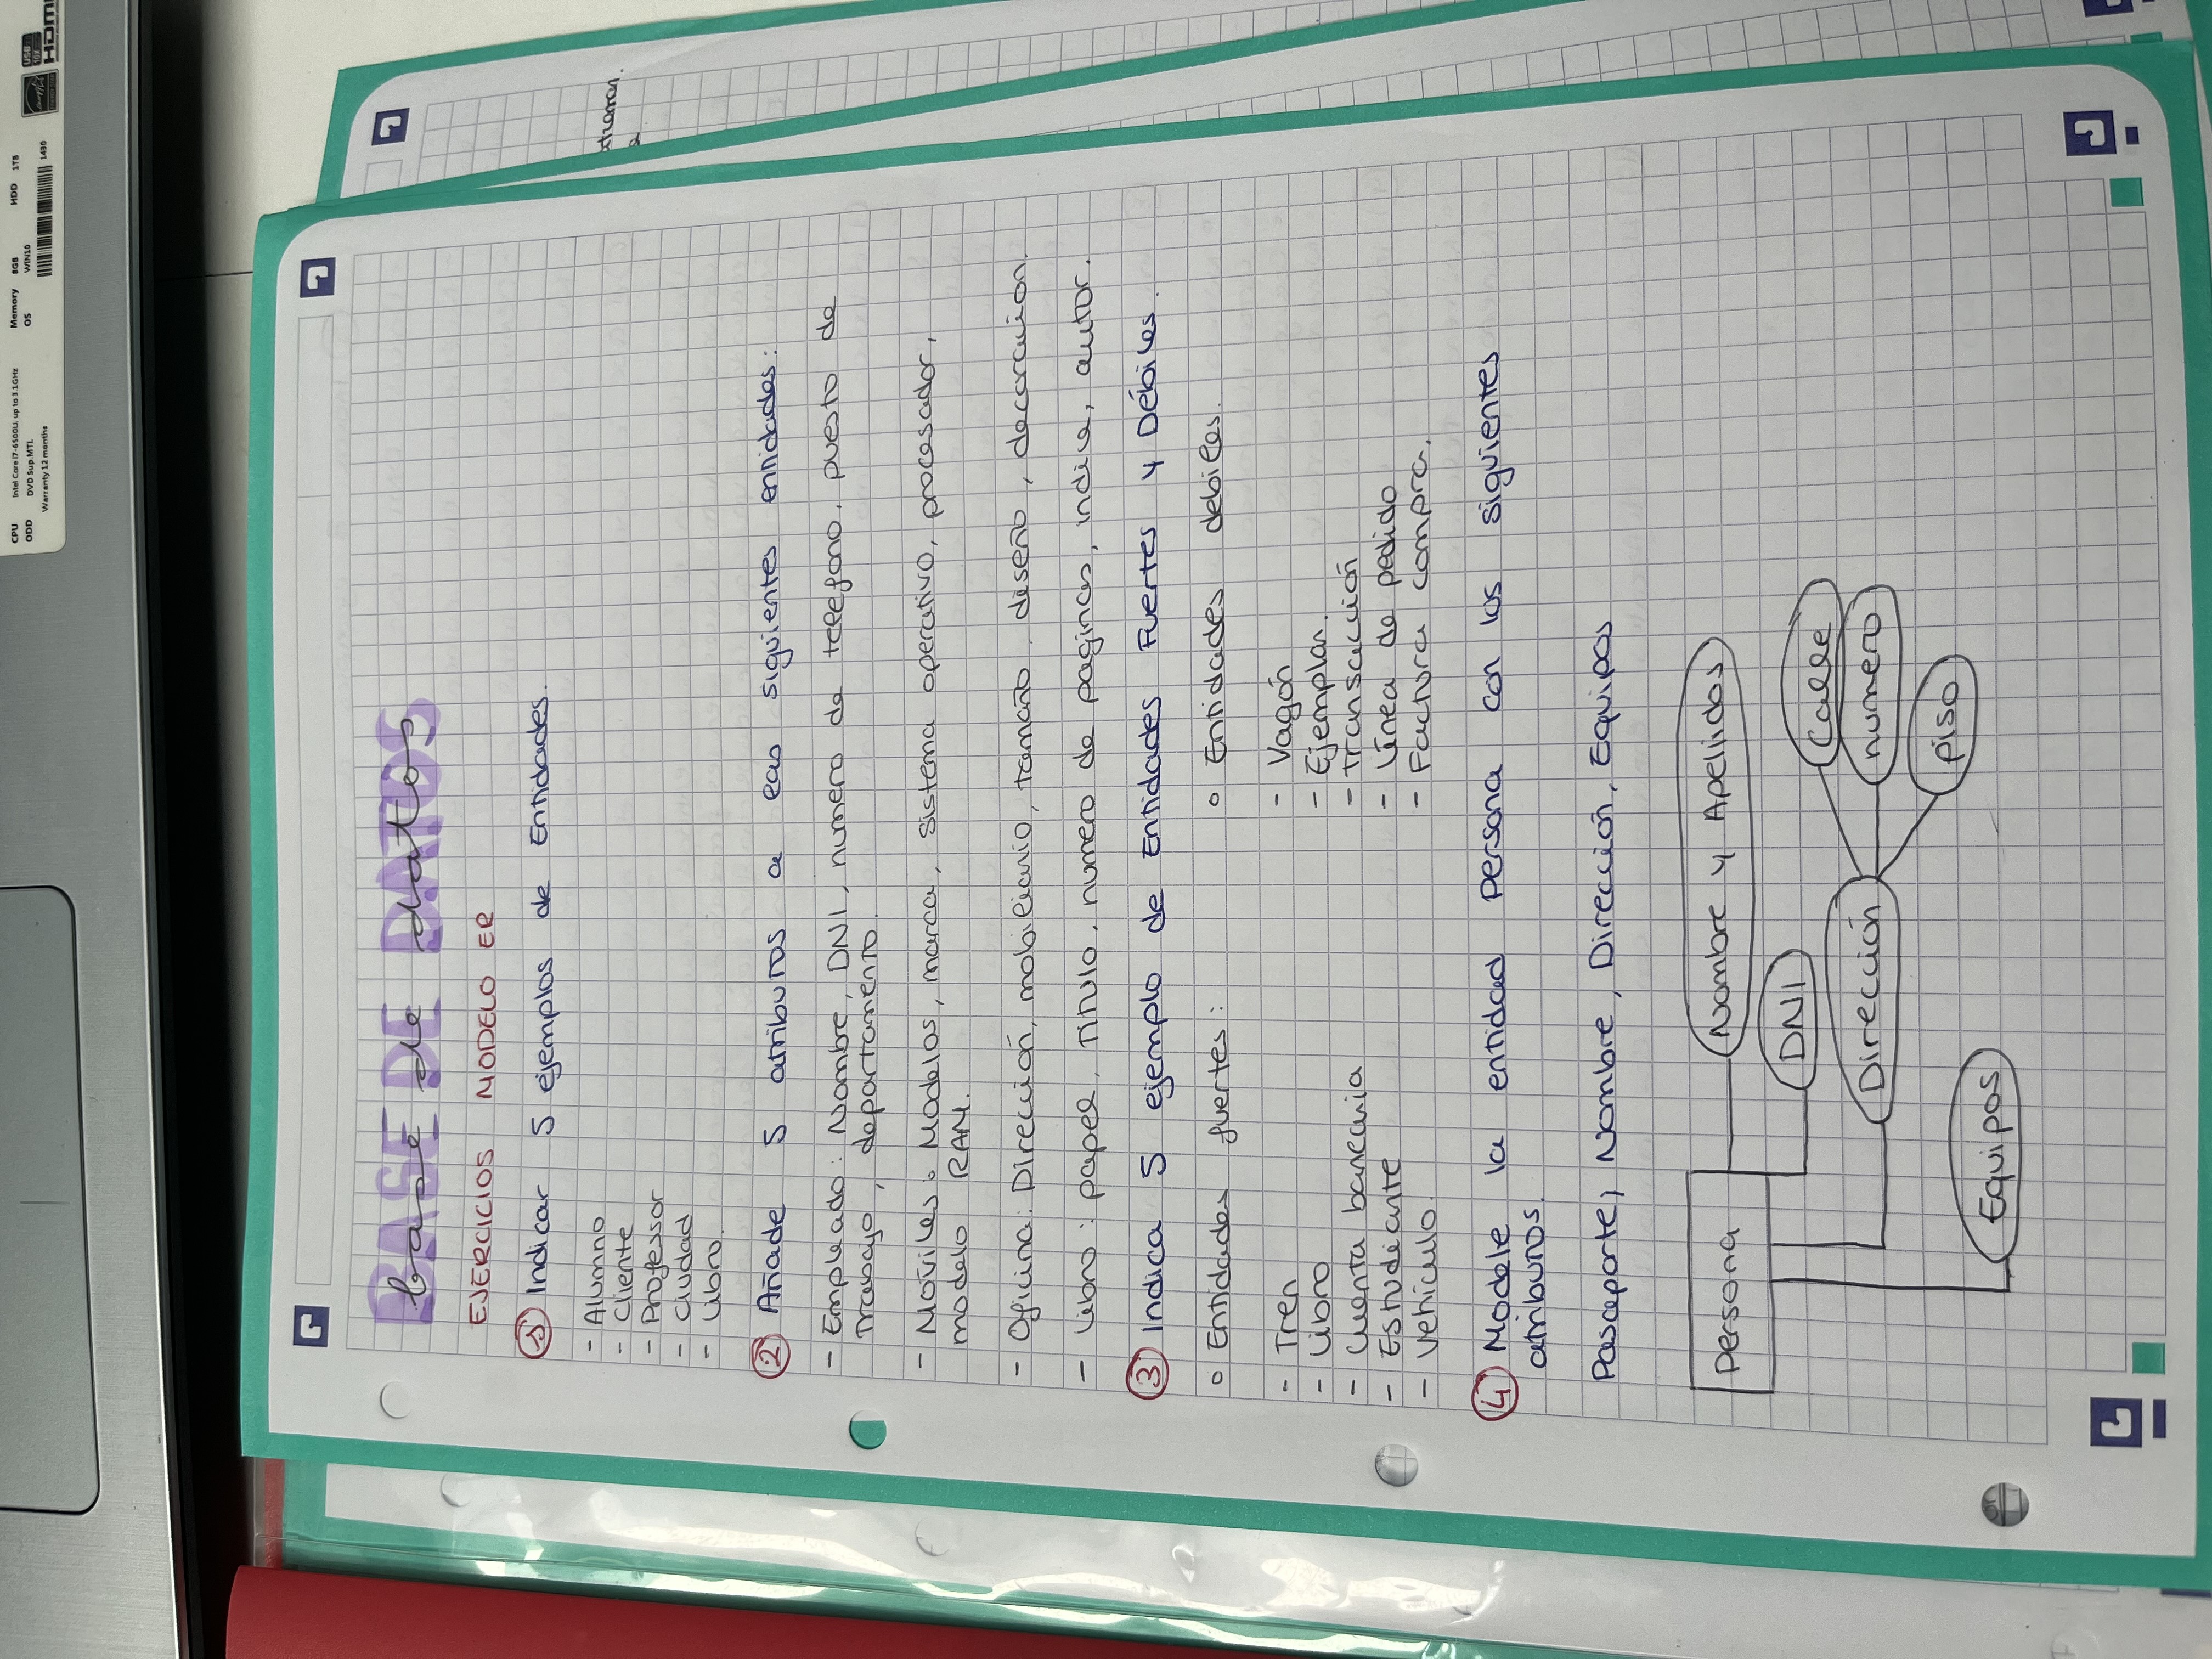 CPU Intel Core i7-6500U, up to 3.1GHz Memory 8GB HDD 1TB
ODD DVD Sup.MTL OS WIN10
Warranty 12 months 1430
USB
HDMI
BASE DE DATOS
base de datos
EJERCICIOS MODELO ER
1 Indicar 5 ejemplos de Entidades.
- Alumno
- Cliente
- Professor
- Ciudad
- Libro.
2 Añade 5 atributos a las siguientes entidades:
- Empleado: Nombre, DNI, numero de telefono, puesto de
trabajo, departamento.
- Móviles: Modelos, marca, sistema operativo, procesador,
modelo RAM.
- Oficina: Dirección, mobiliario, tamaño, diseño, decoracion.
- Libro: papel, titulo, numero de paginas, indice, autor.
3 Indica 5 ejemplo de Entidades Fuertes y Débiles.
o Entidades fuertes: o Entidades debiles.
- Tren - Vagón
- Libro - Ejemplar.
- Cuenta bancaria - Transacción
- Estudiante - Línea de pedido
- Vehículo. - Factura compra.
4 Modele la entidad Persona con los siguientes
atributos.
Pasaporte, Nombre, Dirección, Equipos
Persona Nombre y Apellidos
DNI
Calle
Dirección numero
piso
Equipos